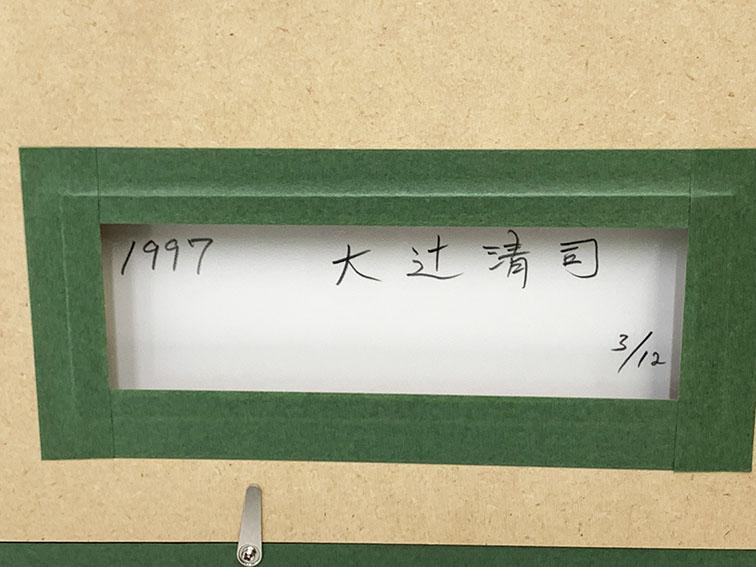 1997 大辻清司
3/12